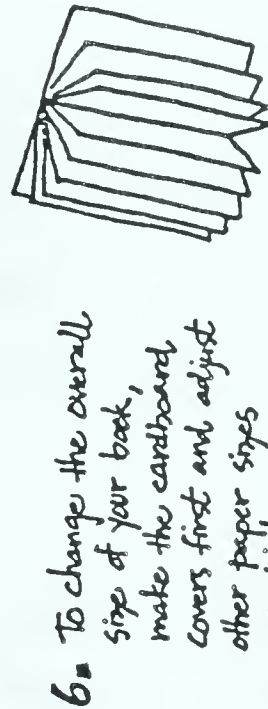 6. To change the overall
size of your book,
make the cardboard
covers first and adjust
other paper sizes